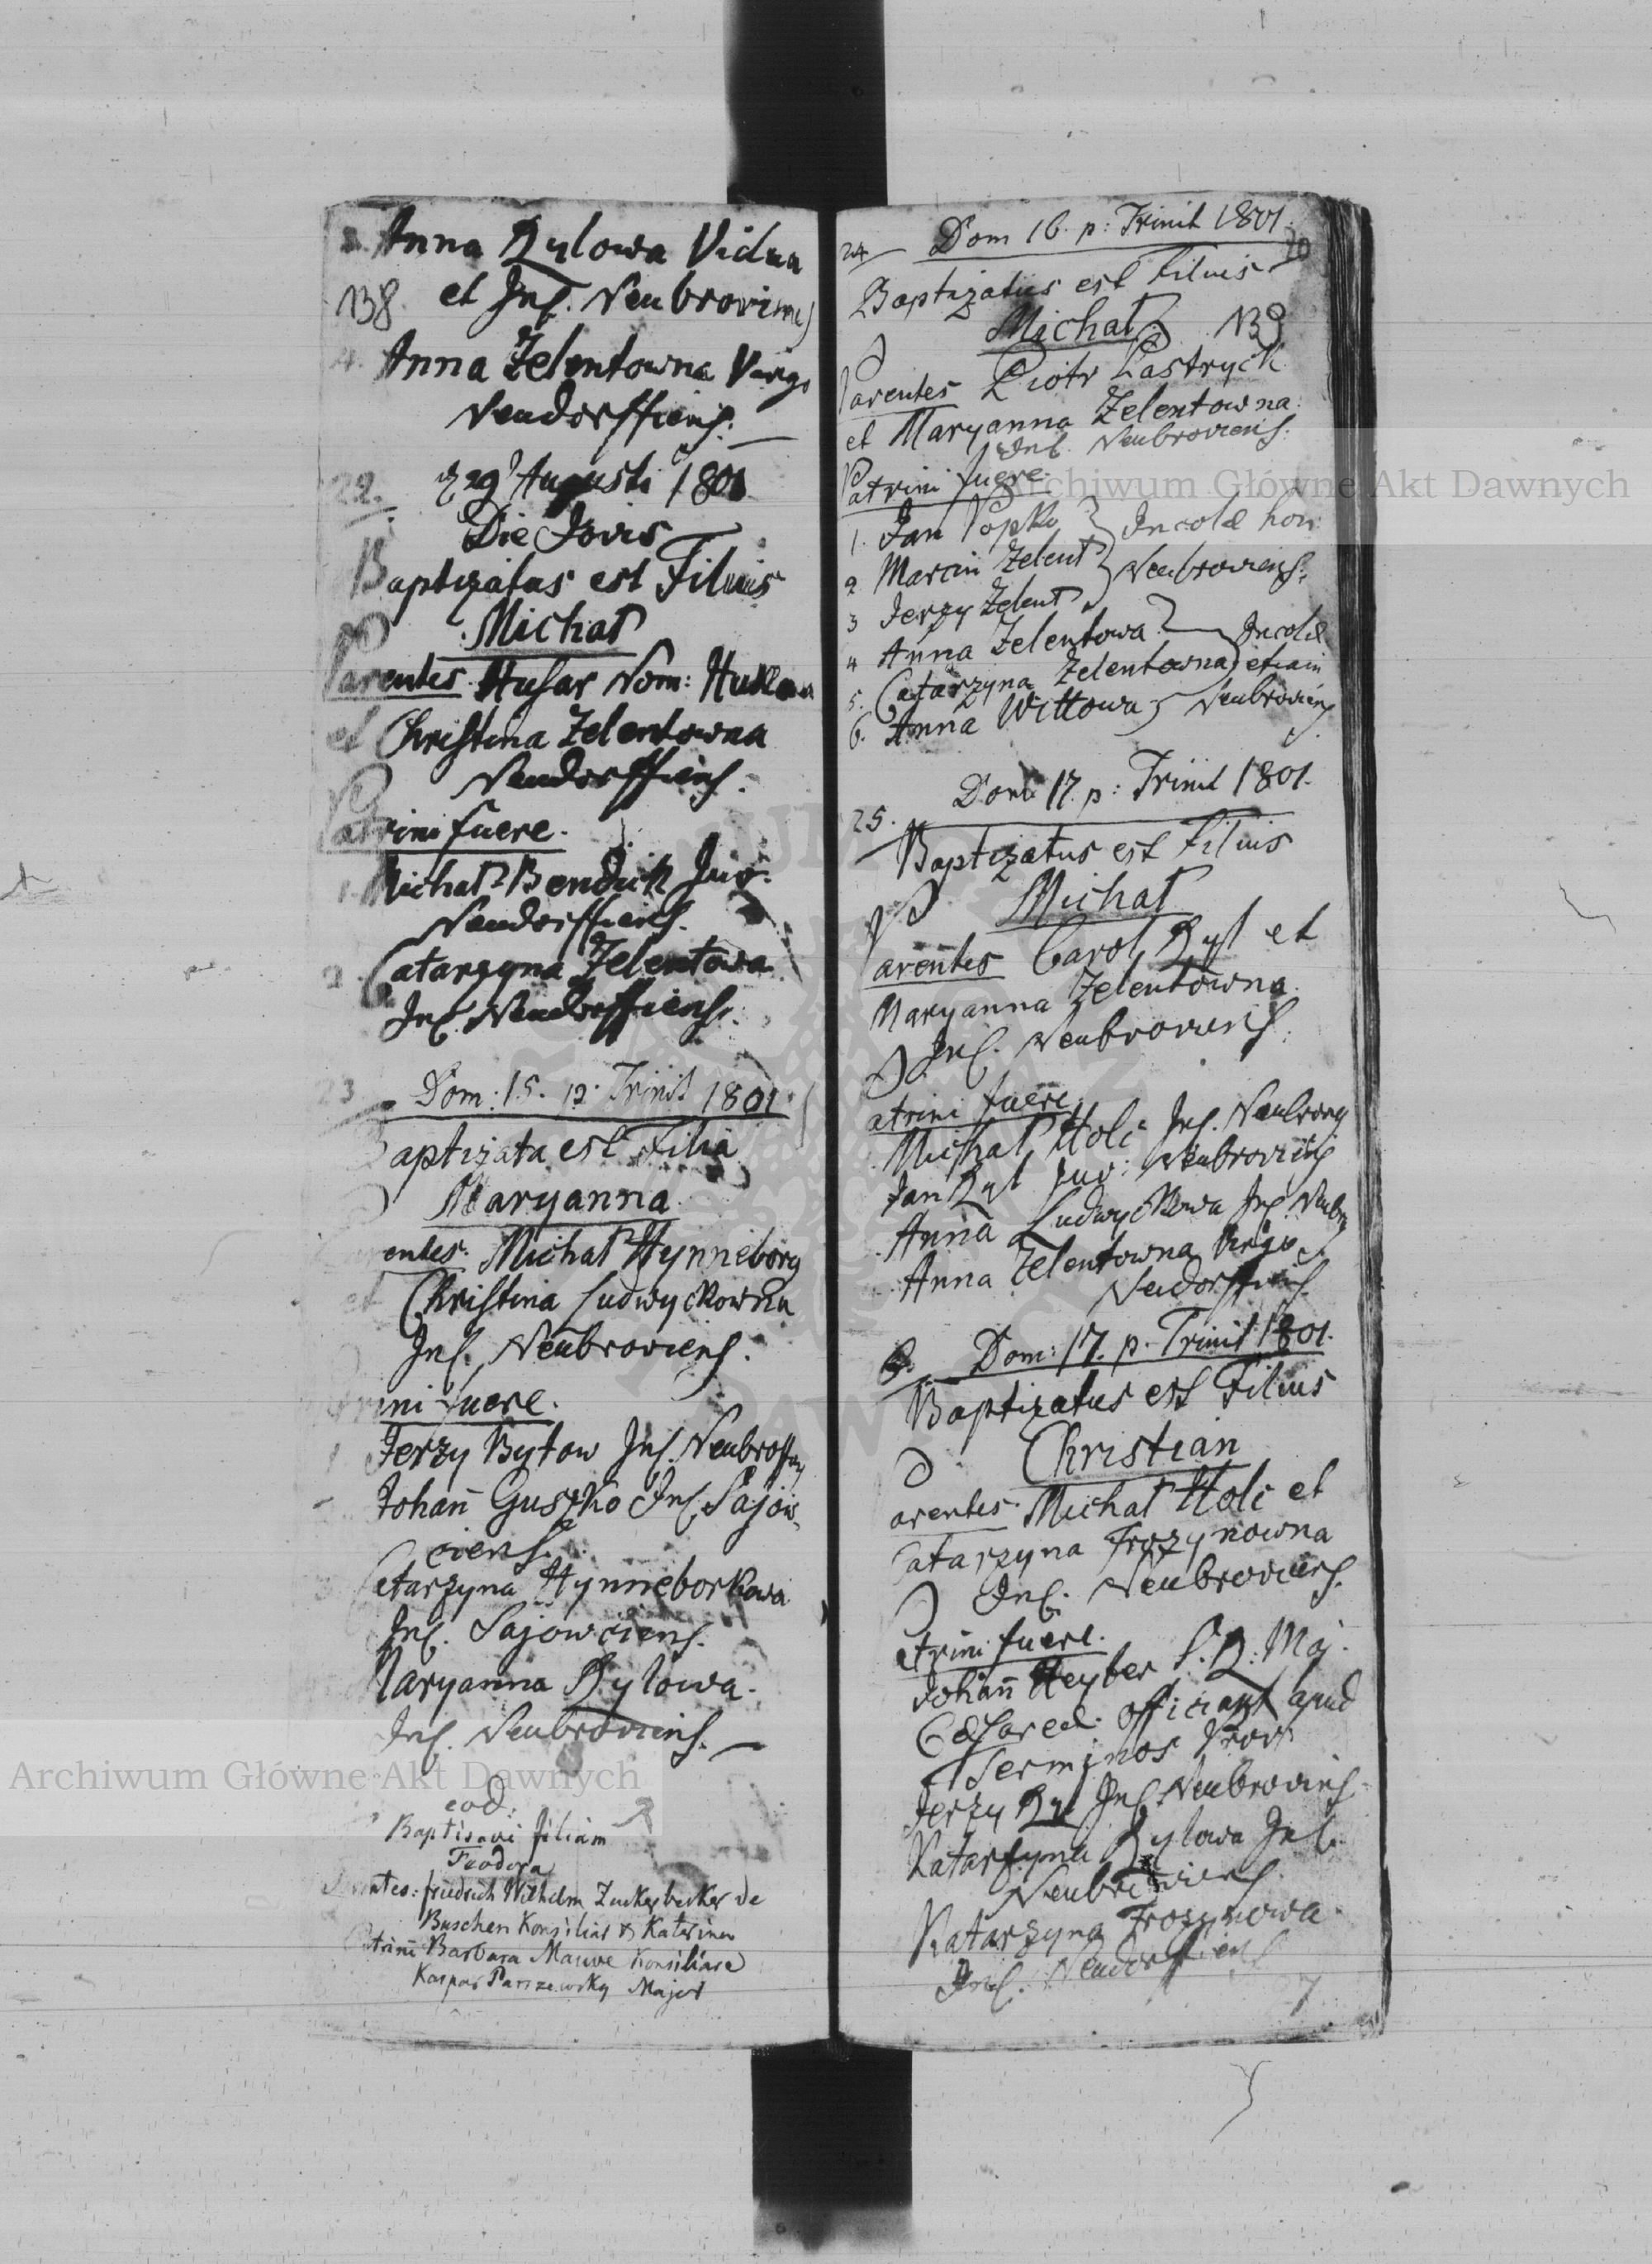 Anna Rylowa Vidua
138 et Inc. Neubroviens
4. Anna Zelentowna Virgo
Neudorffiens.
22. d 29 Augusti 1801
Die Jovis
Baptizatus est Filius
Michał
Parentes Husar Nom:
et Christina Zelentowna
Neudorffiens.
Patrini fuere.
1. Michał Benduck Juv.
Neudorffiens.
2. Catarzyna Zelentowa
Inc. Neudorffiens.
23 Dom: 15. p. Trinit 1801
Baptizata est Filia
Maryanna
Parentes. Michał Hynneborg
et Christina Ludwyckowna
Inc. Neubroviens.
Patrini fuere.
1 Jerzy Bytow Inc.
Johan̄ Guszko Inc. Sajow
ciens.
3 Catarzyna Hynneborkowa
Inc. Sajowciens.
Maryanna Rylowa.
Inc. Neubroviens.
eod:
Baptisavi filiam
Teodora
Parentes: friedrich Wilhelm Zuckerbecker de
Buschen Konsiliar & Katerina
Patrini Barbara Konsiliara
Kaspar Parszewsky Major
24 Dom 16. p: Trinit 1801. 70
Baptizatus est Filius
Michał 139
Parentes Piotr Pastryck
et Maryanna Zelentowna
Inc. Neubroviens.
Patrini fuere.
1. Jan Popko Incolæ hon:
2 Marcin Zelent Neubroviens.
3 Jerzy Zelent
4 Anna Zelentowa Incolæ
5. Catarzyna Zelentowna etiam
6. Anna Wittowa Neubroviens
25. Dom 17. p: Trinit 1801.
Baptizatus est Filius
Michał
Parentes Carol Ryl et
Maryanna Zelentowna
Inc. Neubroviens.
Patrini fuere
Michał Holc Inc.
Jan Ryl Juv: Neubroviens
Anna Ludwyckowa Inc
Anna Zelentowna Virgo
Neudorffiens.
6. Dom: 17. p. Trinit 1801.
Baptizatus est Filius
Christian
Parentes. Michał Holc et
Catarzyna Trozynowna
Inc. Neubroviens.
Patrini fuere.
Johan̄ Heyber S. R: Maj.
Cæsareæ. officiant apud
Terminos
Jerzy Ryl Inc. Neubroviens.
Katarzyna Rylowa Inc.
Neubroviens
Katarzyna Trozynowa
Inc. Neudorffiens
Archiwum Główne Akt Dawnych
Archiwum Główne Akt Dawnych